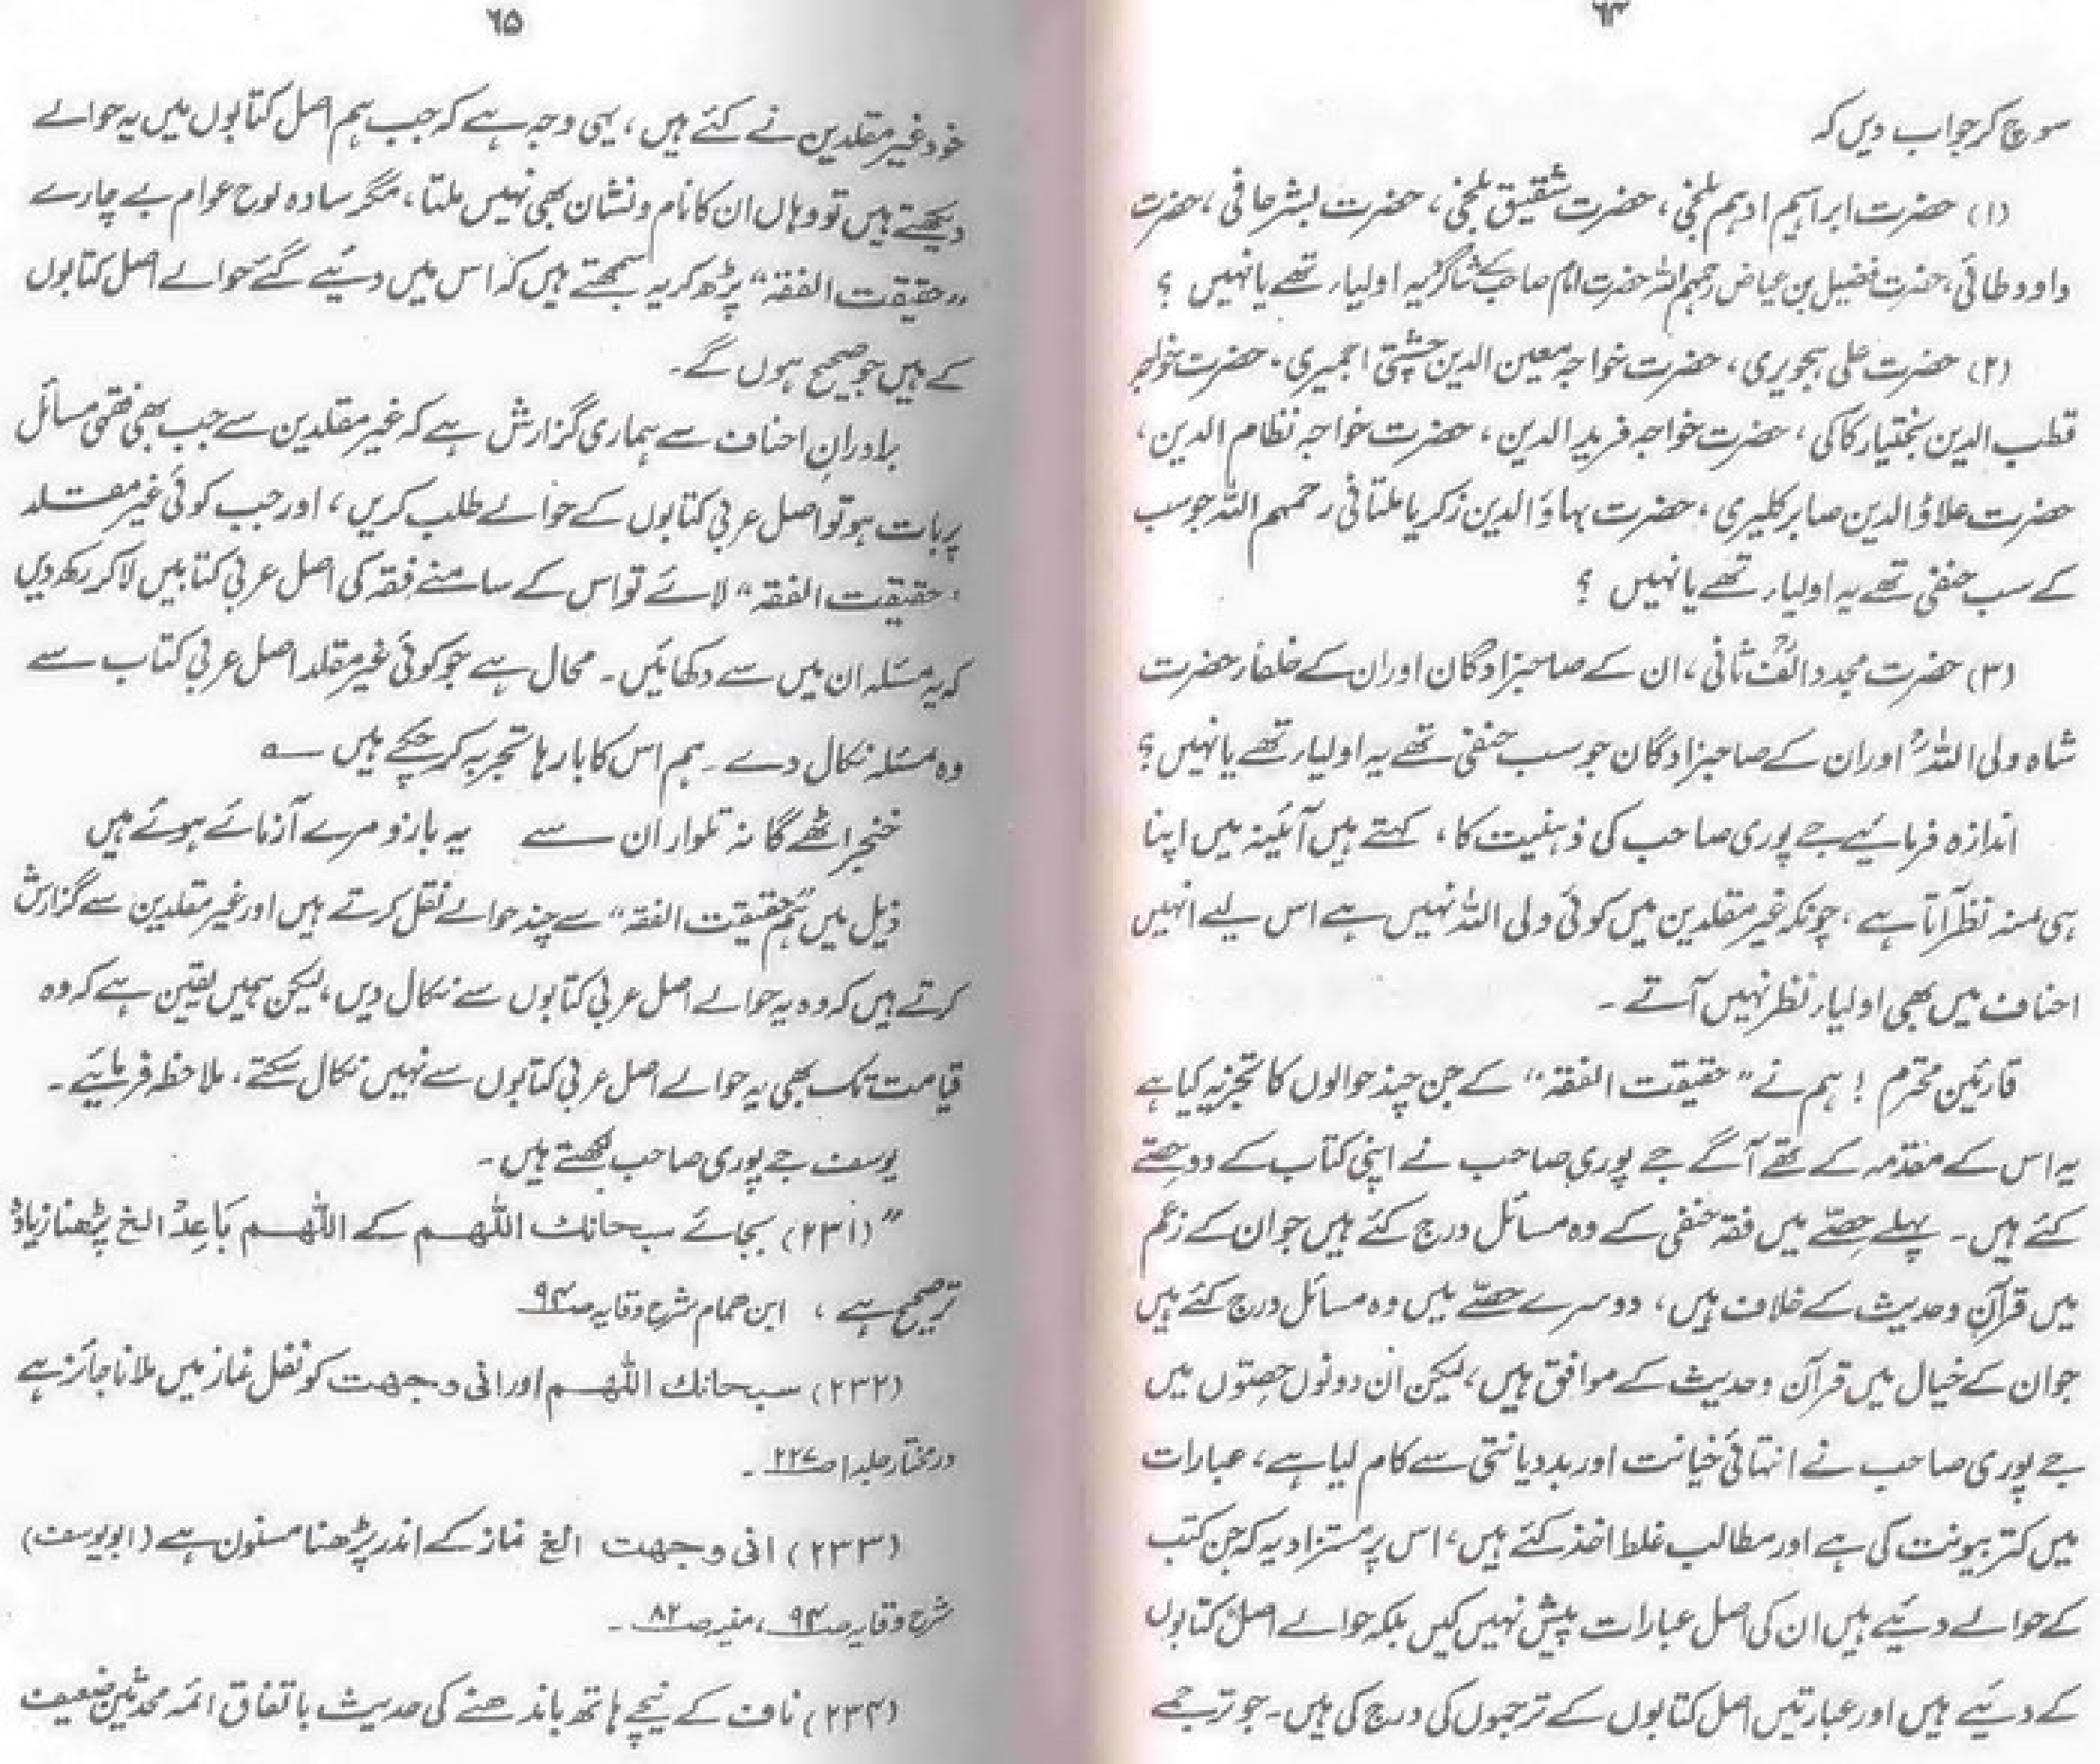 ۶۴
سوچ کر جواب دیں کہ
(۱) حضرت ابراہیم ادہم بلخی، حضرت شقیق بلخی، حضرت بشر حافی، حضرت
داود طائی، حضرت فضیل بن عیاض رحمہم اللہ حضرت امام صاحب کے شاگرد یہ اولیاء تھے یا نہیں ؟
(۲) حضرت علی ہجویری، حضرت خواجہ معین الدین چشتی اجمیری، حضرت خواجہ
قطب الدین بختیار کاکی، حضرت خواجہ فرید الدین، حضرت خواجہ نظام الدین،
حضرت علاؤ الدین صابر کلیری، حضرت بہاؤ الدین زکریا ملتانی رحمہم اللہ جو سب
کے سب حنفی تھے یہ اولیاء تھے یا نہیں ؟
(۳) حضرت مجدد الف ثانیؒ، ان کے صاحبزادگان اور ان کے خلفاء حضرت
شاہ ولی اللہؒ اور ان کے صاحبزادگان جو سب حنفی تھے یہ اولیاء تھے یا نہیں ؟
اندازہ فرمائیے جے پوری صاحب کی ذہنیت کا، کہتے ہیں آئینہ میں اپنا
ہی منہ نظر آتا ہے، چونکہ غیر مقلدین میں کوئی ولی اللہ نہیں ہے اس لیے انہیں
احناف میں بھی اولیاء نظر نہیں آتے ۔
قارئین محترم ! ہم نے "حقیقت الفقہ" کے جن چند حوالوں کا تجزیہ کیا ہے
یہ اس کے مقدمہ کے تھے آگے جے پوری صاحب نے اپنی کتاب کے دو حصّے
کئے ہیں۔ پہلے حصّے میں فقہ حنفی کے وہ مسائل درج کئے ہیں جو ان کے زعم
میں قرآن و حدیث کے خلاف ہیں، دوسرے حصّے میں وہ مسائل درج کئے ہیں
جو ان کے خیال میں قرآن و حدیث کے موافق ہیں، لیکن ان دونوں حصّوں میں
جے پوری صاحب نے انتہائی خیانت اور بددیانتی سے کام لیا ہے، عبارات
میں کتر بیونت کی ہے اور مطالب غلط اخذ کئے ہیں، اس پر مستزاد یہ کہ جن کتب
کے حوالے دئیے ہیں ان کی اصل عبارات پیش نہیں کیں بلکہ حوالے اصل کتابوں
کے دئیے ہیں اور عبارتیں اصل کتابوں کے ترجموں کی درج کی ہیں۔ جو ترجمے
۶۵
خود غیر مقلدین نے کئے ہیں، یہی وجہ ہے کہ جب ہم اصل کتابوں میں یہ حوالے
دیکھتے ہیں تو وہاں ان کا نام و نشان بھی نہیں ملتا، مگر سادہ لوح عوام بے چارے
"حقیقت الفقہ" پڑھ کر یہ سمجھتے ہیں کہ اس میں دئیے گئے حوالے اصل کتابوں
کے ہیں جو صحیح ہوں گے۔
برادرانِ احناف سے ہماری گزارش ہے کہ غیر مقلدین سے جب بھی فقہی مسائل
پر بات ہو تو اصل عربی کتابوں کے حوالے طلب کریں، اور جب کوئی غیر مقلد
"حقیقت الفقہ" لائے تو اس کے سامنے فقہ کی اصل عربی کتابیں لا کر رکھ دیں
کہ یہ مسئلہ ان میں سے دکھائیں۔ محال ہے جو کوئی غیر مقلد اصل عربی کتاب سے
وہ مسئلہ نکال دے۔ ہم اس کا بارہا تجربہ کر چکے ہیں ؎
خنجر اٹھے گا نہ تلوار ان سے یہ بازو مرے آزمائے ہوئے ہیں
ذیل میں ہم "حقیقت الفقہ" سے چند حوالے نقل کرتے ہیں اور غیر مقلدین سے گزارش
کرتے ہیں کہ وہ یہ حوالے اصل عربی کتابوں سے نکال دیں، لیکن ہمیں یقین ہے کہ وہ
قیامت تک بھی یہ حوالے اصل عربی کتابوں سے نہیں نکال سکتے، ملاحظہ فرمائیے۔
یوسف جے پوری صاحب لکھتے ہیں۔
"(۲۳۱) بجائے سبحانک اللھم کے اللھم بَاعِدْ الخ پڑھنا زیادہ
تر صحیح ہے، ابن ھمام شرح وقایہ صـ۹۴
(۲۳۲) سبحانک اللھم اور انی وجھت کو نفل نماز میں ملانا جائز ہے
درمختار جلد ۱ صـ۲۲۷۔
(۲۳۳) انی وجھت الخ نماز کے اندر پڑھنا مسنون ہے (ابو یوسف)
شرح وقایہ صـ۹۴، منیہ صـ۸۲۔
(۲۳۴) ناف کے نیچے ہاتھ باندھنے کی حدیث باتفاق ائمہ محدثین ضعیف